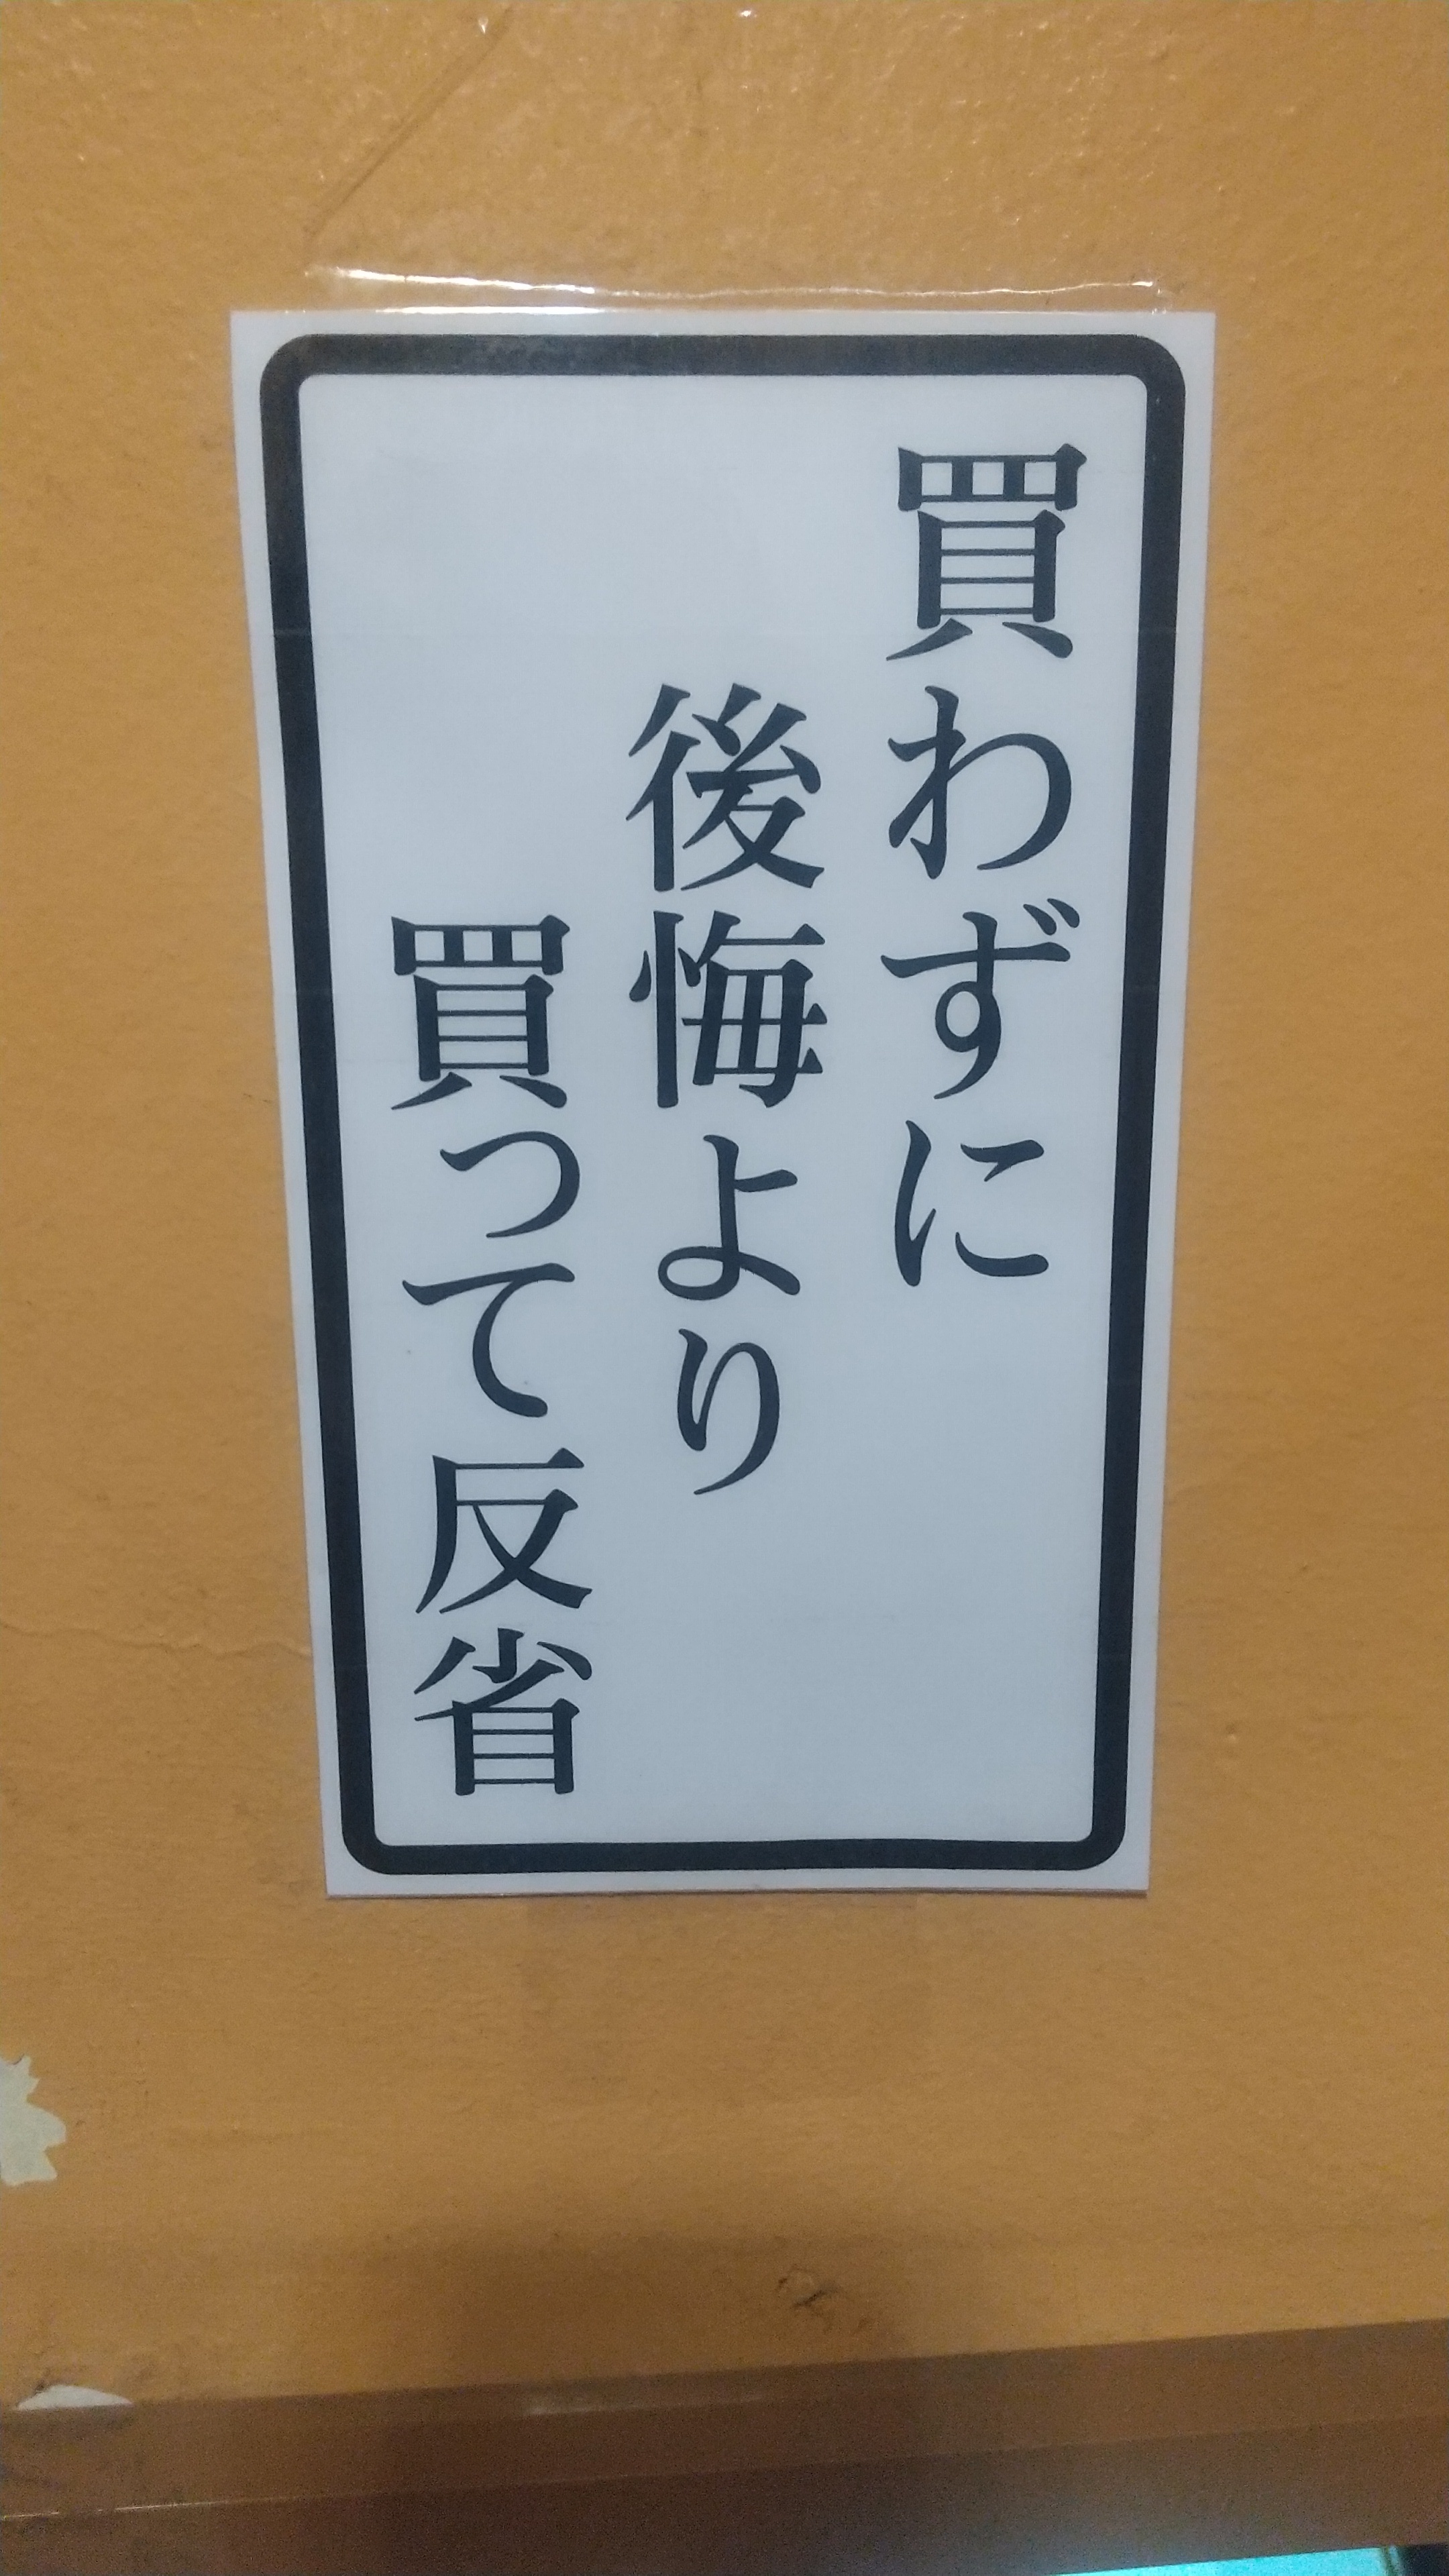 買わずに
後悔より
買って反省